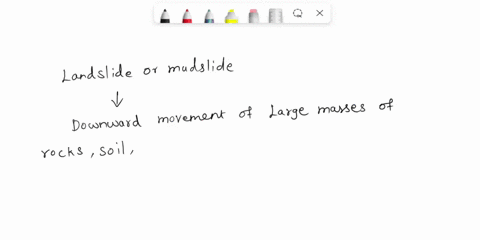 Landslide or mudslide
↓
Downward movement of Large masses of
rocks, soil,